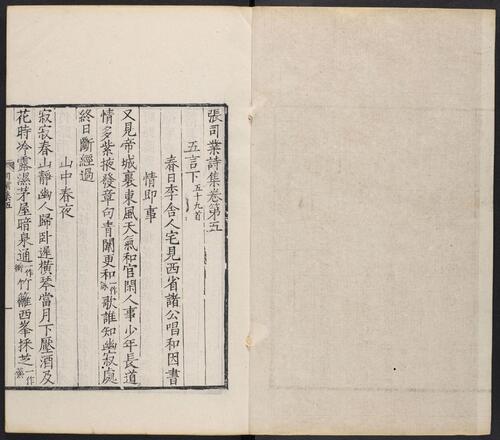 張司業詩集卷第五
五言下 五十九首
春日李舍人宅見西省諸公唱和因書
情即事
又見帝城裏東風天氣和官閑人事少年長道
情多紫掖發章句青闈更和一作詠歌誰知幽寂處
終日斷經過
山中春夜
寂寂春山靜幽人歸臥遲橫琴當月下壓酒及
花時冷露濕茅屋暗泉通一作衝竹籬西峯採芝一作藥